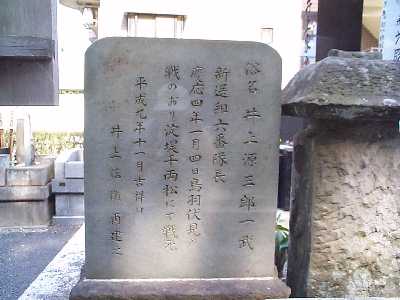 俗名 井上源三郎一武
新選組六番隊長
慶応四年一月四日鳥羽伏見の
戦のおり淀堤千両松にて戦死
平成九年十二月吉祥日
井上 建之